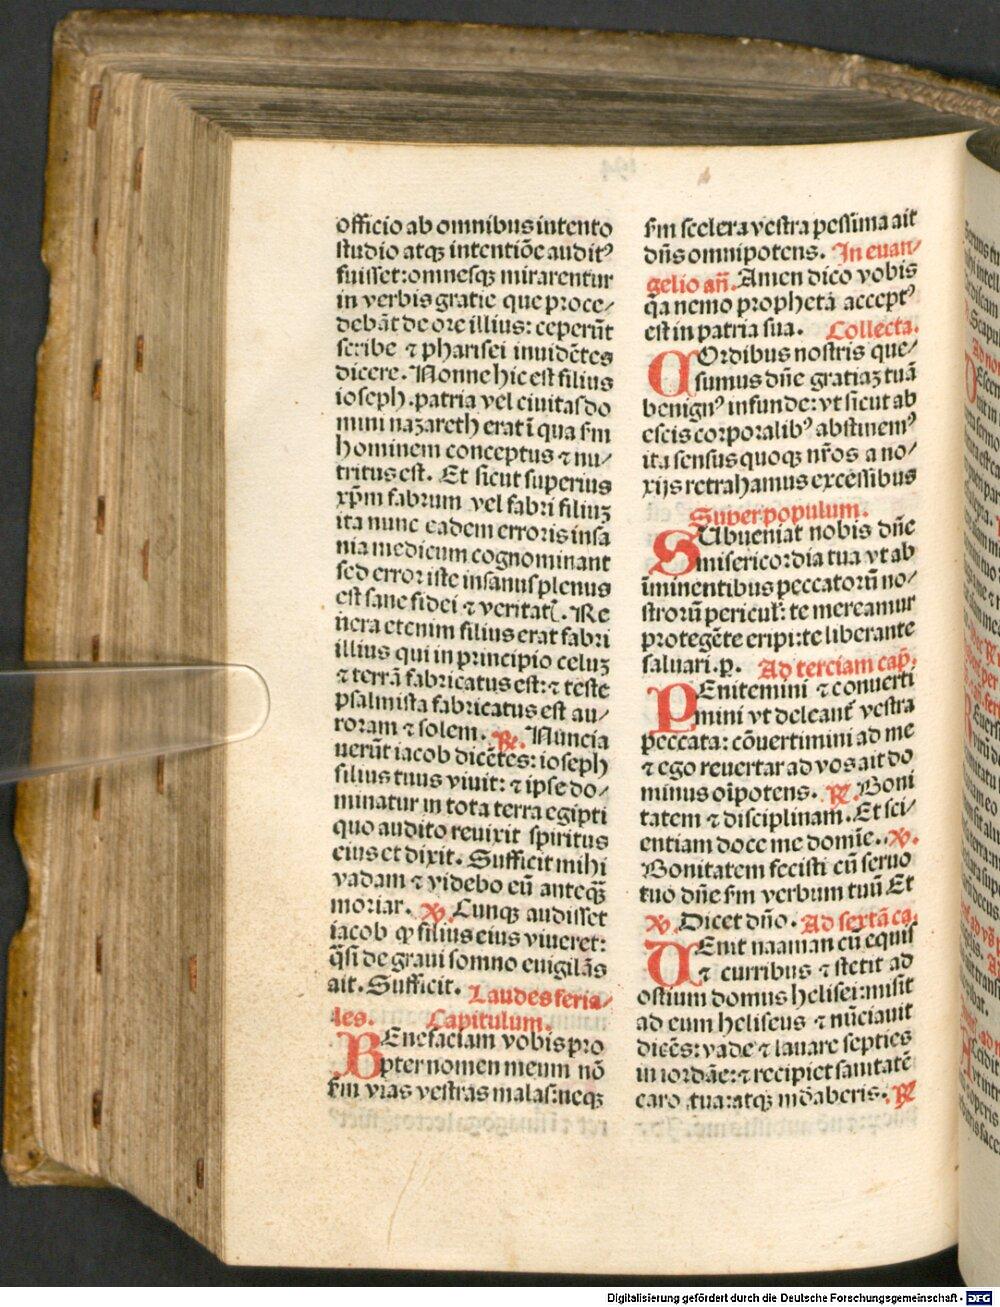 officio ab omnibus intento
studio atqꝫ intentiōe auditꝰ
fuisset: omnesqꝫ mirarentur
in verbis gratie que proce/
debāt de ore illius: ceperūt
scribe ⁊ pharisei inuidētes
dicere. Nonne hic est filius
ioseph. patria vel ciuitas do
mini nazareth erat ī qua fm
hominem conceptus ⁊ nu/
tritus est. Et sicut superius
xp̄m fabrum vel fabri filiuꝫ
ita nunc eadem erroris insa
nia medicum cognominant
sed error iste insanus plenus
est sane fidei ⁊ veritatꝭ. Re
uera etenim filius erat fabri
illius qui in principio celuꝫ
⁊ terrā fabricatus est: ⁊ teste
psalmista fabricatus est au/
roram ⁊ solem. ℟. Nuncia
uerūt iacob dicētes: ioseph
filius tuus viuit: ⁊ ipse do/
minatur in tota terra egipti
quo audito reuixit spiritus
eius et dixit. Sufficit mihi
vadam ⁊ videbo eū anteqꝫ̄
moriar. ℣. Cunqꝫ audisset
iacob ꝙ filius eius viueret:
q̄si de graui somno euigilās
ait. Sufficit. Laudes feria/
les. Capitulum.
BEnefaciam vobis pro
pter nomen meum nō
fm vias vestras malas: neqꝫ
fm scelera vestra pessima ait
dn̄s omnipotens. In euan/
gelio an̄. Amen dico vobis
qa nemo propheta acceptꝰ
est in patria sua. Collecta.
COrdibus nostris que/
sumus dn̄e gratiaꝫ tuā
benignꝰ infunde: vt sicut ab
escis corporalibꝰ abstinemꝰ
ita sensus quoqꝫ nr̄os a no/
xijs retrahamus excessibus
Super populum.
SUbueniat nobis dn̄e
misericordia tua vt ab
īminentibus peccatorū no/
strorū pericul̓: te mereamur
protegēte eripi: te liberante
saluari. p̲. Ad terciam cap̄.
PEnitemini ⁊ conuerti
mini vt deleant̓ vestra
peccata: cōuertimini ad me
⁊ ego reuertar ad vos ait do
minus oīpotens. ℟. Boni
tatem ⁊ disciplinam. Et sci/
entiam doce me domīe. ℣.
Bonitatem fecisti cū seruo
tuo dn̄e fm verbum tuū Et
℣. Dicet dn̄o. Ad sextā ca.
UEnit naaman cū equis
⁊ curribus ⁊ stetit ad
ostium domus helisei: misit
ad eum heliseus ⁊ nūciauit
dicēs: vade ⁊ lauare septies
in iordāe: ⁊ recipiet sanitatē
caro tua: atqꝫ mūdaberis. ℟
Digitalisierung gefördert durch die Deutsche Forschungsgemeinschaft - DFG